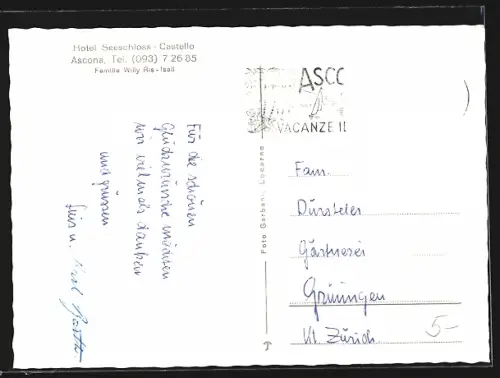 Hotel Seeschloss - Castello
Ascona, Tel. (093) 7 26 85
Familie Willy Ris - Isali
ASCO
VACANZE I
Für die schönen
Glückwünsche möchten
wir vielmals danken
und grüssen
u. Karl
Foto Garbani, Locarno
Fam.
Dürsteler
Gärtnerei
Grüningen
Kt. Zürich
5-